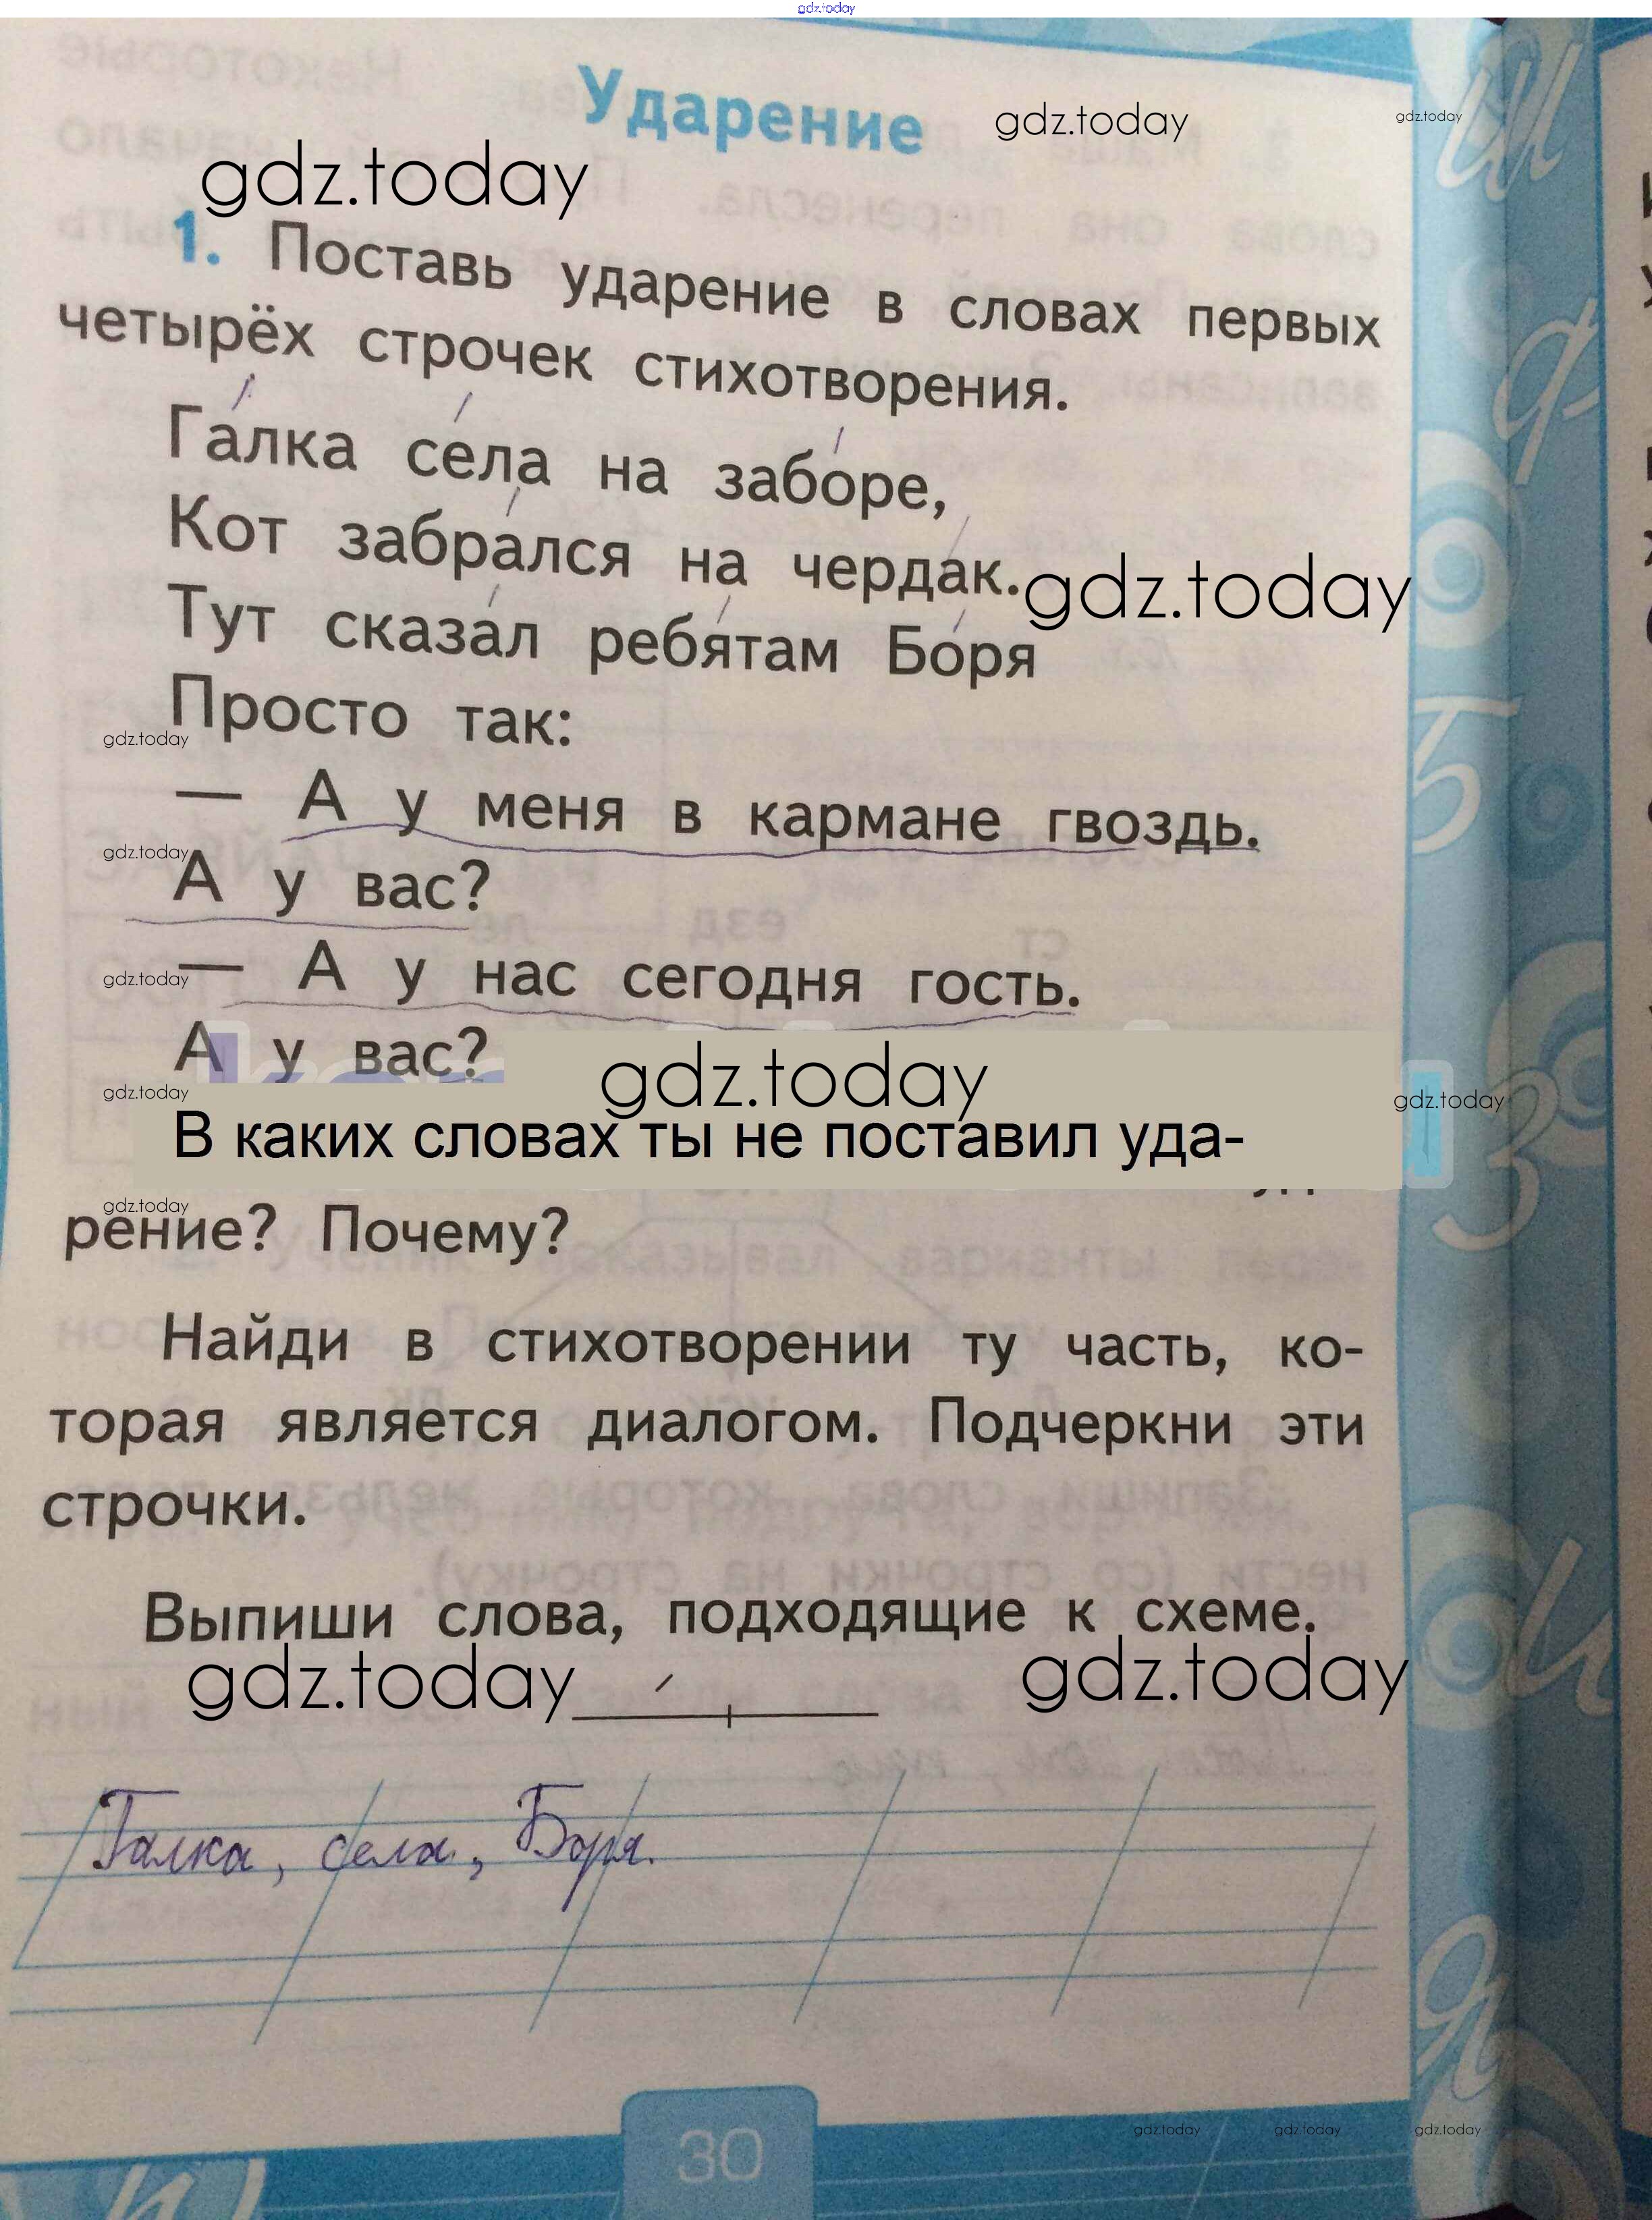 gdz.today
Ударение
gdz.today
gdz.today
gdz.today
1. Поставь ударение в словах первых
четырёх строчек стихотворения.
Галка села на заборе,
Кот забрался на чердак.
gdz.today
Тут сказал ребятам Боря
Просто так:
gdz.today
— А у меня в кармане гвоздь.
gdz.today
А у вас?
— А у нас сегодня гость.
gdz.today
А у вас?
gdz.today
gdz.today
gdz.today
В каких словах ты не поставил уда-
gdz.today
рение? Почему?
Найди в стихотворении ту часть, ко-
торая является диалогом. Подчеркни эти
строчки.
Выпиши слова, подходящие к схеме.
gdz.today
gdz.today
Галка, села, Боря.
30
gdz.today
gdz.today
gdz.today